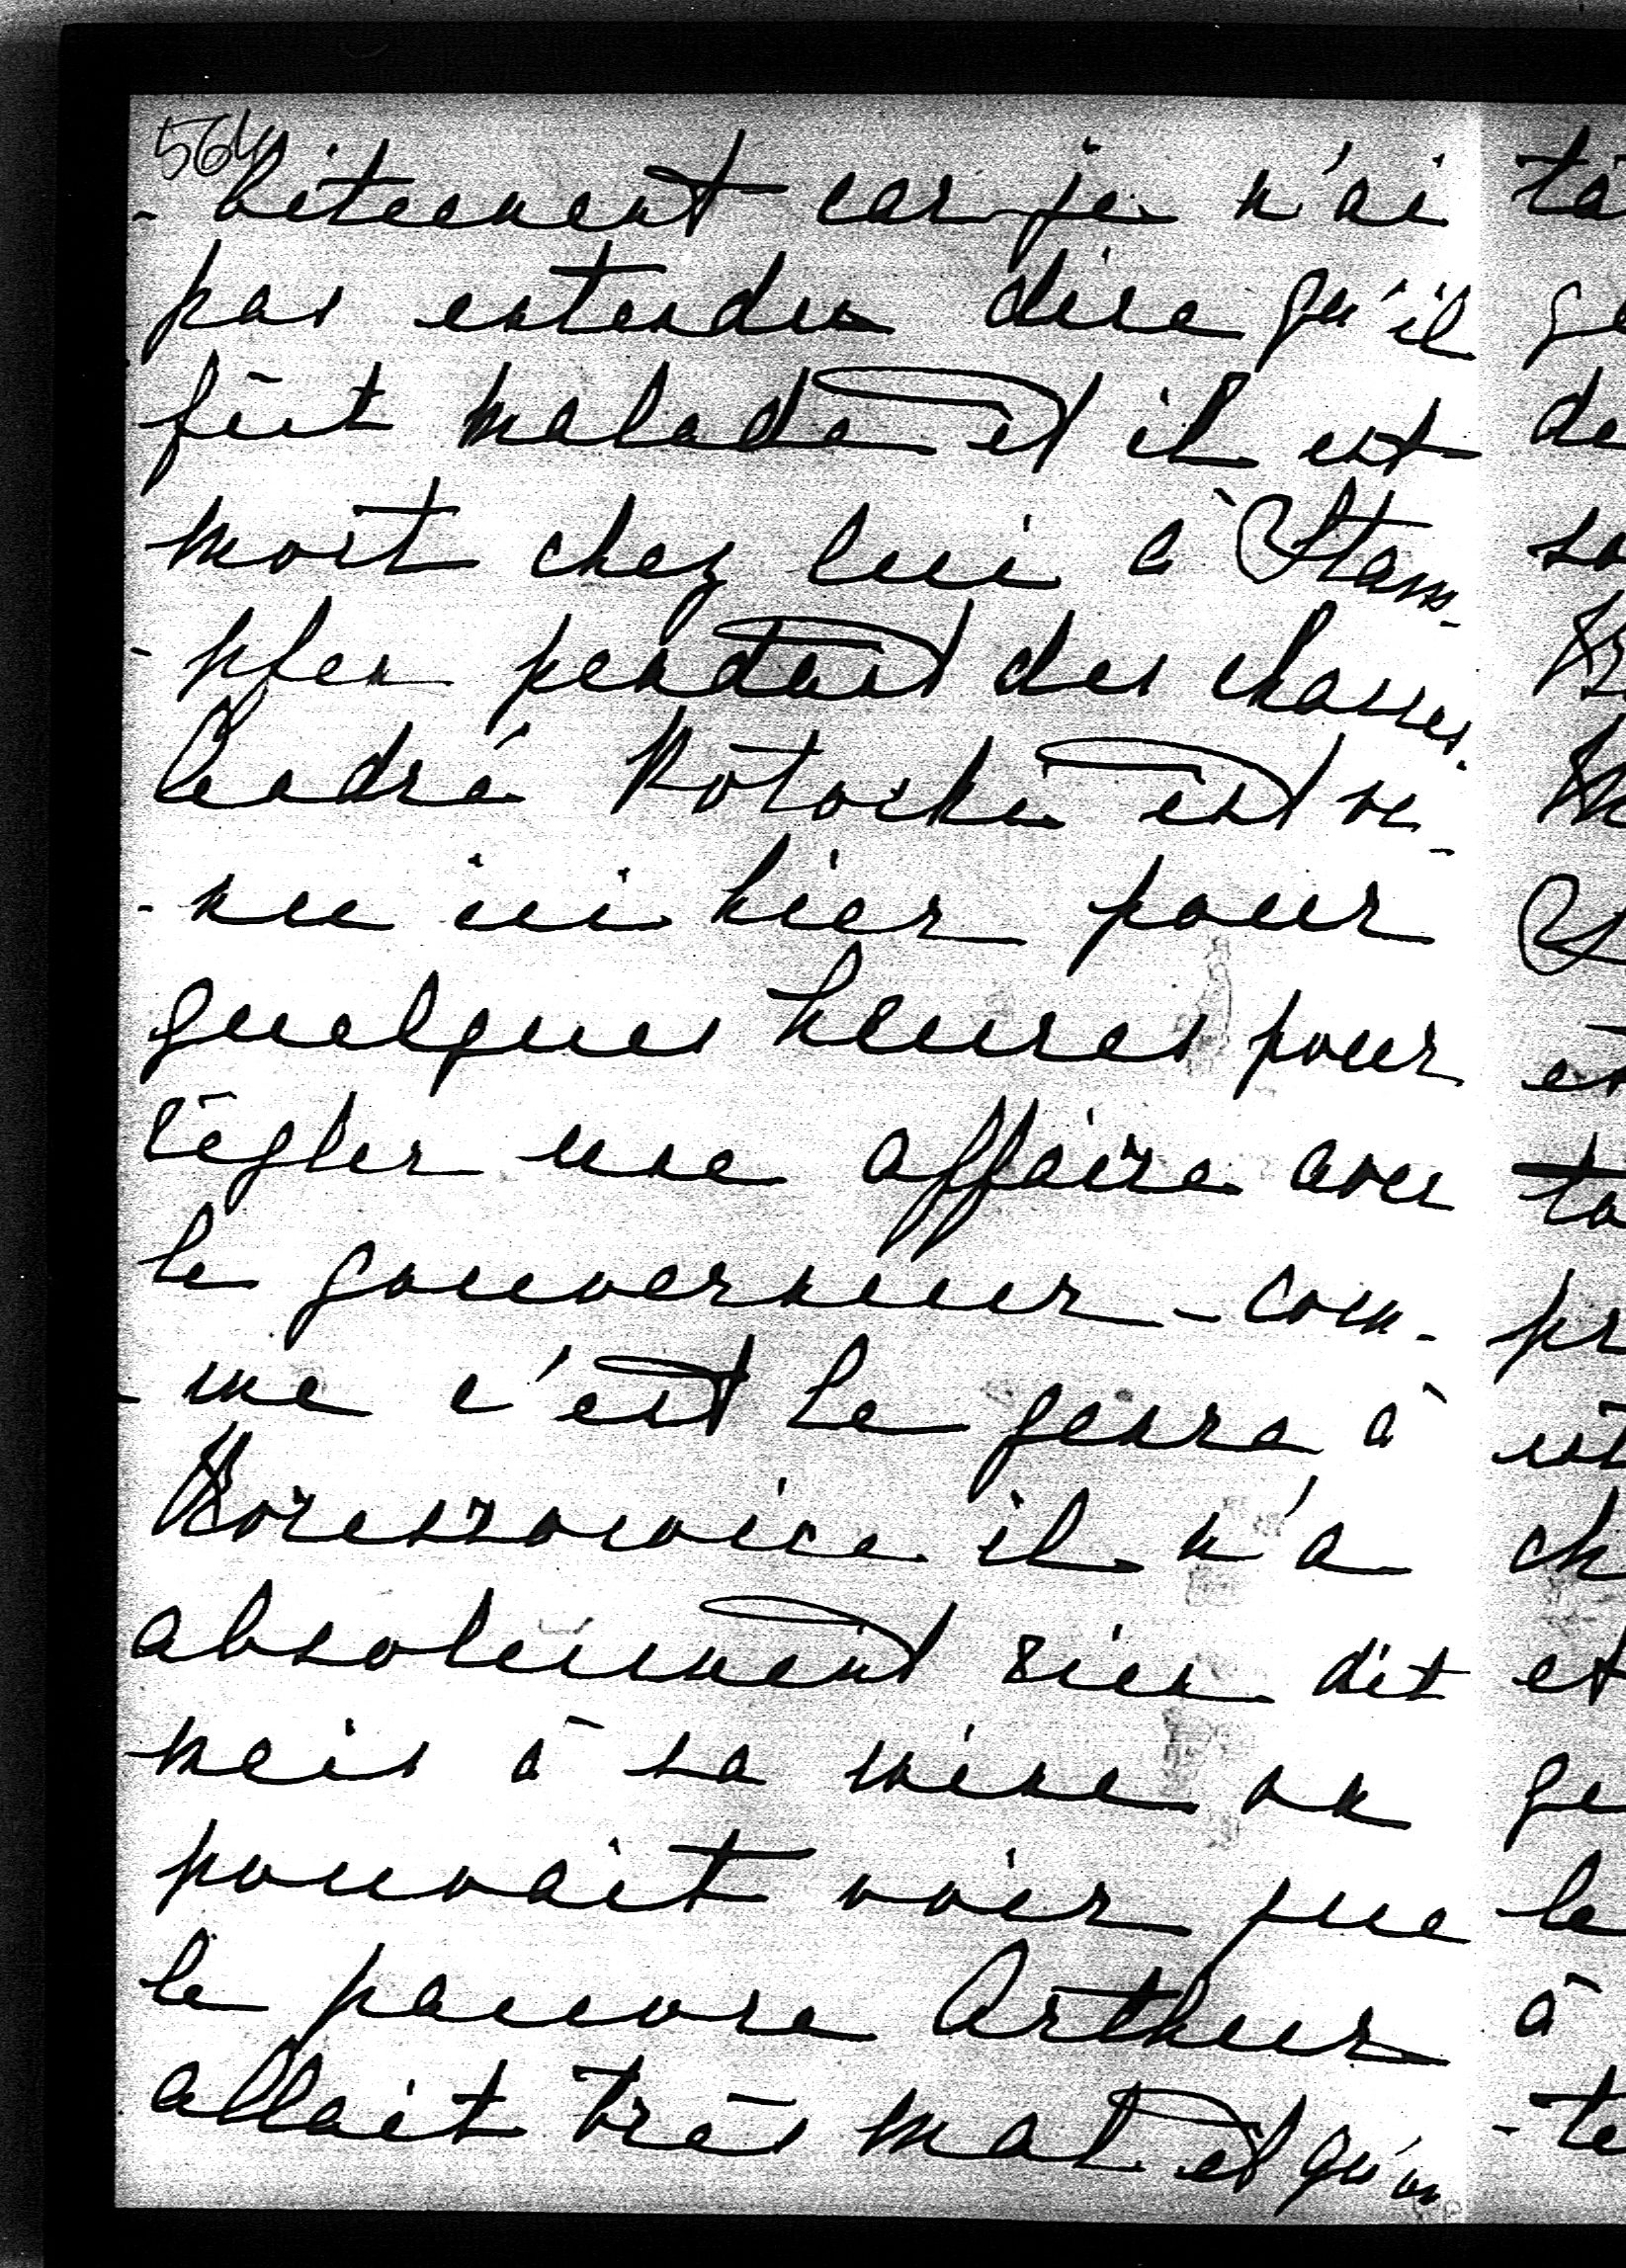 564
-bitement car je n'ai
pas entendu dire qu'il
fût malade et il est
mort chez lui à Stam-
-pfen pendant des chasses.
André Potocki est ve-
-nu ici hier pour
quelques heures pour
règler une affaire avec
le gouverneur - com-
-me c'est le genre à
il n'a
absolument rien dit
mais à sa mine on
pouvait voir que
le pauvre Arthur
allait très mal et qu'on